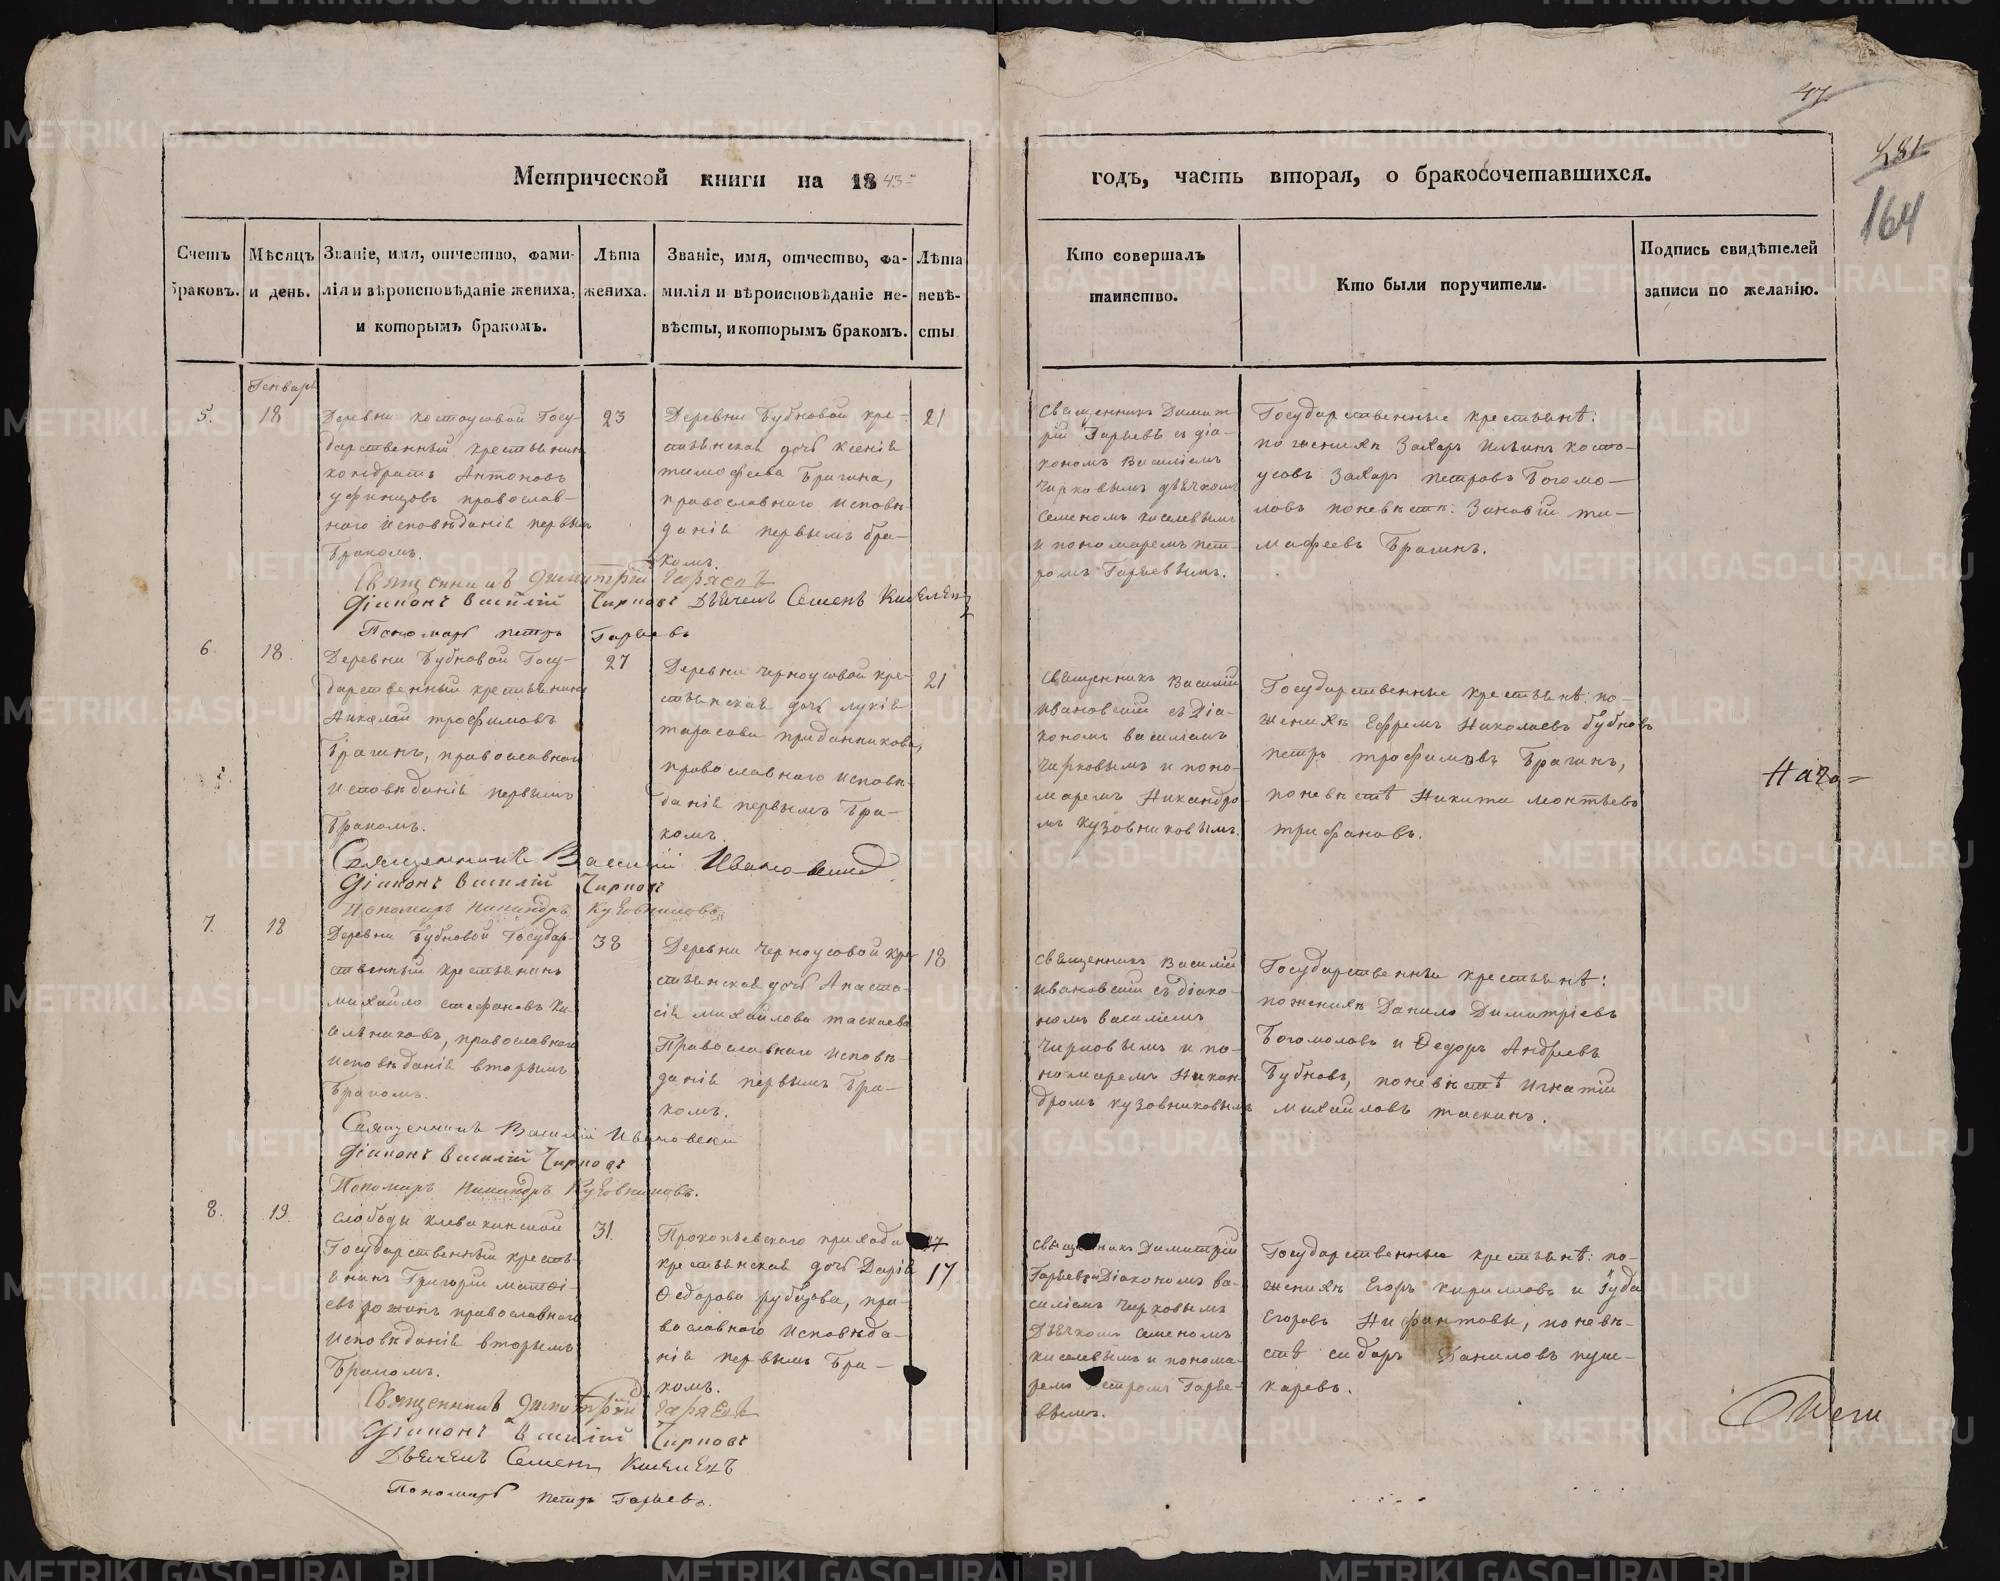 47.
481
164
Метрической книги на 1843
годъ, часть вторая, о бракосочетавшихся.
Счетъ браковъ.
Мѣсяцъ и день.
Званіе, имя, отчество, фами-
лія и вѣроисповѣданіе жениха,
и которымъ бракомъ.
Лѣта
жениха.
Званіе, имя, отчество, фа-
милія и вѣроисповѣданіе не-
вѣсты, и которымъ бракомъ.
Лѣта
невѣ-
сты
Кто совершалъ
таинство.
Кто были поручители.
Подпись свидѣтелей
записи по желанію.
Генварь
5.
18
Деревни Костоусовой Госу-
дарственный крестьянинъ
Кондратъ Антоновъ
Уфинцовъ православ-
наго исповѣданія первымъ
бракомъ.
23
Деревни Бубновой кре-
стьянская дочь Ксенія
Тимофеева Брагина,
православнаго исповѣ-
данія первымъ бра-
комъ.
21
Священникъ Димит-
рій Гаряевъ съ діа-
кономъ Василіемъ
Чирковымъ дьячкомъ
Семеномъ Киселевымъ
и пономаремъ Пет-
ромъ Гаряевымъ.
Государственные крестьянѣ:
по женихѣ Захаръ Ильинъ Косто-
усовъ Захаръ Петровъ Богомо-
ловъ по невѣстѣ: Зиновій Ти-
мафеевъ Брагинъ.
Священникъ Димитрій Гаряевъ
Діаконъ Василій Чирковъ Дьячекъ Семенъ Киселевъ
Пономарь Петръ Гаряевъ
6.
18.
Деревни Бубновой Госу-
дарственный крестьянинъ
Николай Трофимовъ
Брагинъ, православнаго
исповѣданія первымъ
бракомъ.
27
Деревни Черноусовой кре-
стьянская дочь Лукія
Тарасова Приданникова,
православнаго исповѣ-
данія первымъ бра-
комъ.
21
Священникъ Василій
Ивановскій съ Діа-
кономъ Василіемъ
Чирковымъ и поно-
маремъ Никандро-
мъ Кузовниковымъ.
Государственные крестьянѣ: по
женихѣ Ефремъ Николаевъ Бубновъ
Петръ Трофимовъ Брагинъ,
по невѣстѣ Никита Леонтьевъ
Трифановъ.
Священникъ Василій Ивановскій
Діаконъ Василій Чирковъ
Пономарь Никандръ Кузовниковъ
7.
18
Деревни Бубновой Государ-
ственный крестьянинъ
Михайло Стефановъ Ка-
сьяновъ, православнаго
исповѣданія вторымъ
бракомъ.
38
Деревни Черноусовой кре-
стьянская дочь Анаста-
сія Михайлова Таскаева
Православнаго исповѣ-
данія первымъ бра-
комъ.
18
Священникъ Василій
Ивановскій съ діако-
номъ Василіемъ
Чирковымъ и по-
номаремъ Никан-
дромъ Кузовниковымъ
Государственныи крестьянѣ:
по женихѣ Данило Димитріевъ
Богомоловъ и Ѳедоръ Андреевъ
Бубновъ, по невѣстѣ Игнатій
Михайловъ Таскинъ.
Священникъ Василій Ивановски
Діаконъ Василій Чирковъ
Пономарь Никандръ Кузовниковъ.
8.
19.
Слободы Клевакинской
Государственный кресть-
янинъ Григорій Матѳі-
евъ Рожинъ православнаго
исповѣданія вторымъ
бракомъ.
31.
Прокопьевскаго прихода
крестьянская дочь Дарія
Ѳедорова Рубцова, пра-
вославнаго исповѣда-
нія первымъ бра-
комъ.
17
17
Священникъ Димитрій
Гаряевъ Діакономъ Ва-
силіемъ Чирковымъ
Дьячкомъ Семеномъ
Киселевымъ и понома-
ремъ Петромъ Гаряе-
вымъ.
Государственные крестьянѣ: по
женихѣ Егоръ Кириловъ и Іуда
Егоровъ Нифантовы, по невѣ-
стѣ Сидоръ Даниловъ Пуш-
каревъ.
Священникъ Димитрій Гаряевъ
Діаконъ Василій Чирковъ
Дьячекъ Семенъ Киселевъ
Пономарь Петръ Гаряевъ.
METRIKI.GASO-URAL.RU